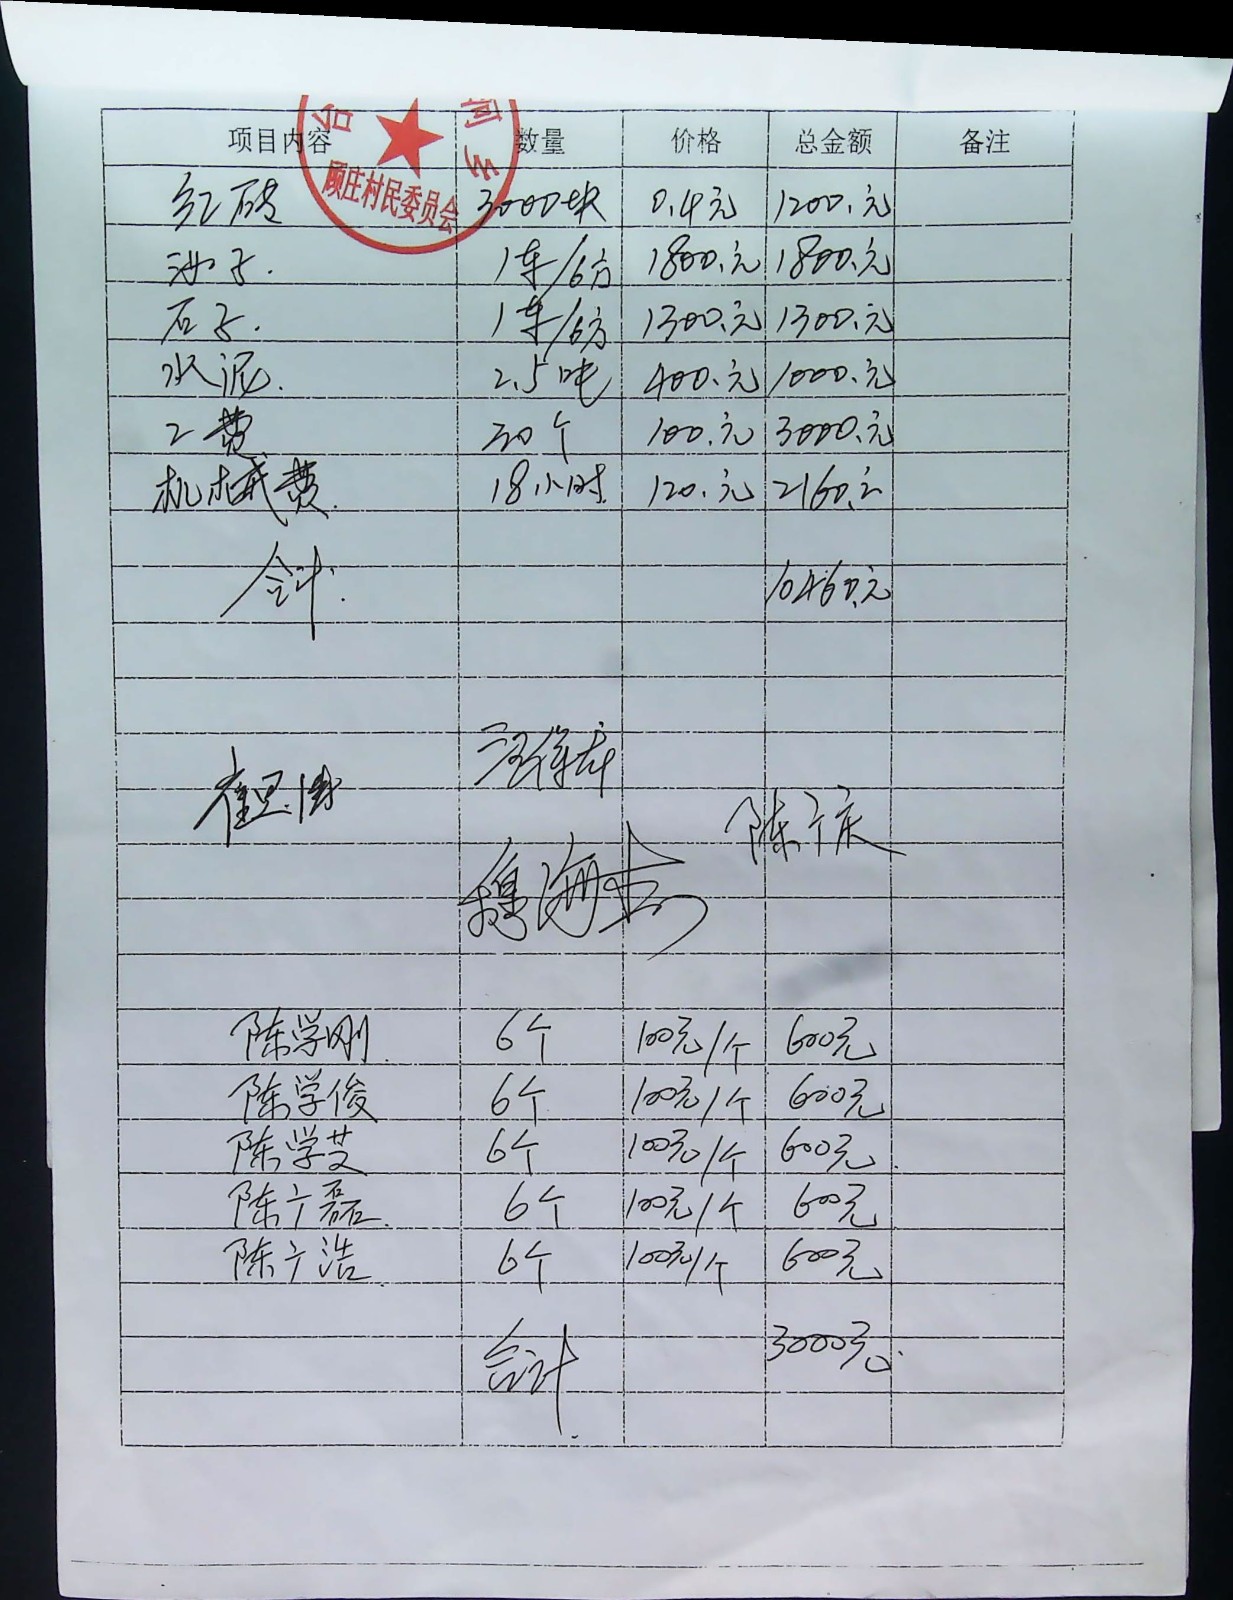 台 河乡
顾庄村民委员会
项目内容 数量 价格 总金额 备注
红砖 3000块 0.4元 1200.元
沙子. 1车/6方 1800.元 1800.元
石子. 1车/6方 1300.元 1300.元
水泥. 2.5吨 400.元 1000.元
工费 30个 100.元 3000.元
机械费. 18小时 120.元 2160.元
合计. 10460.元
陈广庆
陈学刚. 6个 100元/1个 600元
陈学俊 6个 100元/1个 600元
陈学艾 6个 100元/1个 600元.
陈广磊. 6个 100元/1个 600元
陈广浩. 6个 100元/1个 600元
合计. 3000元.